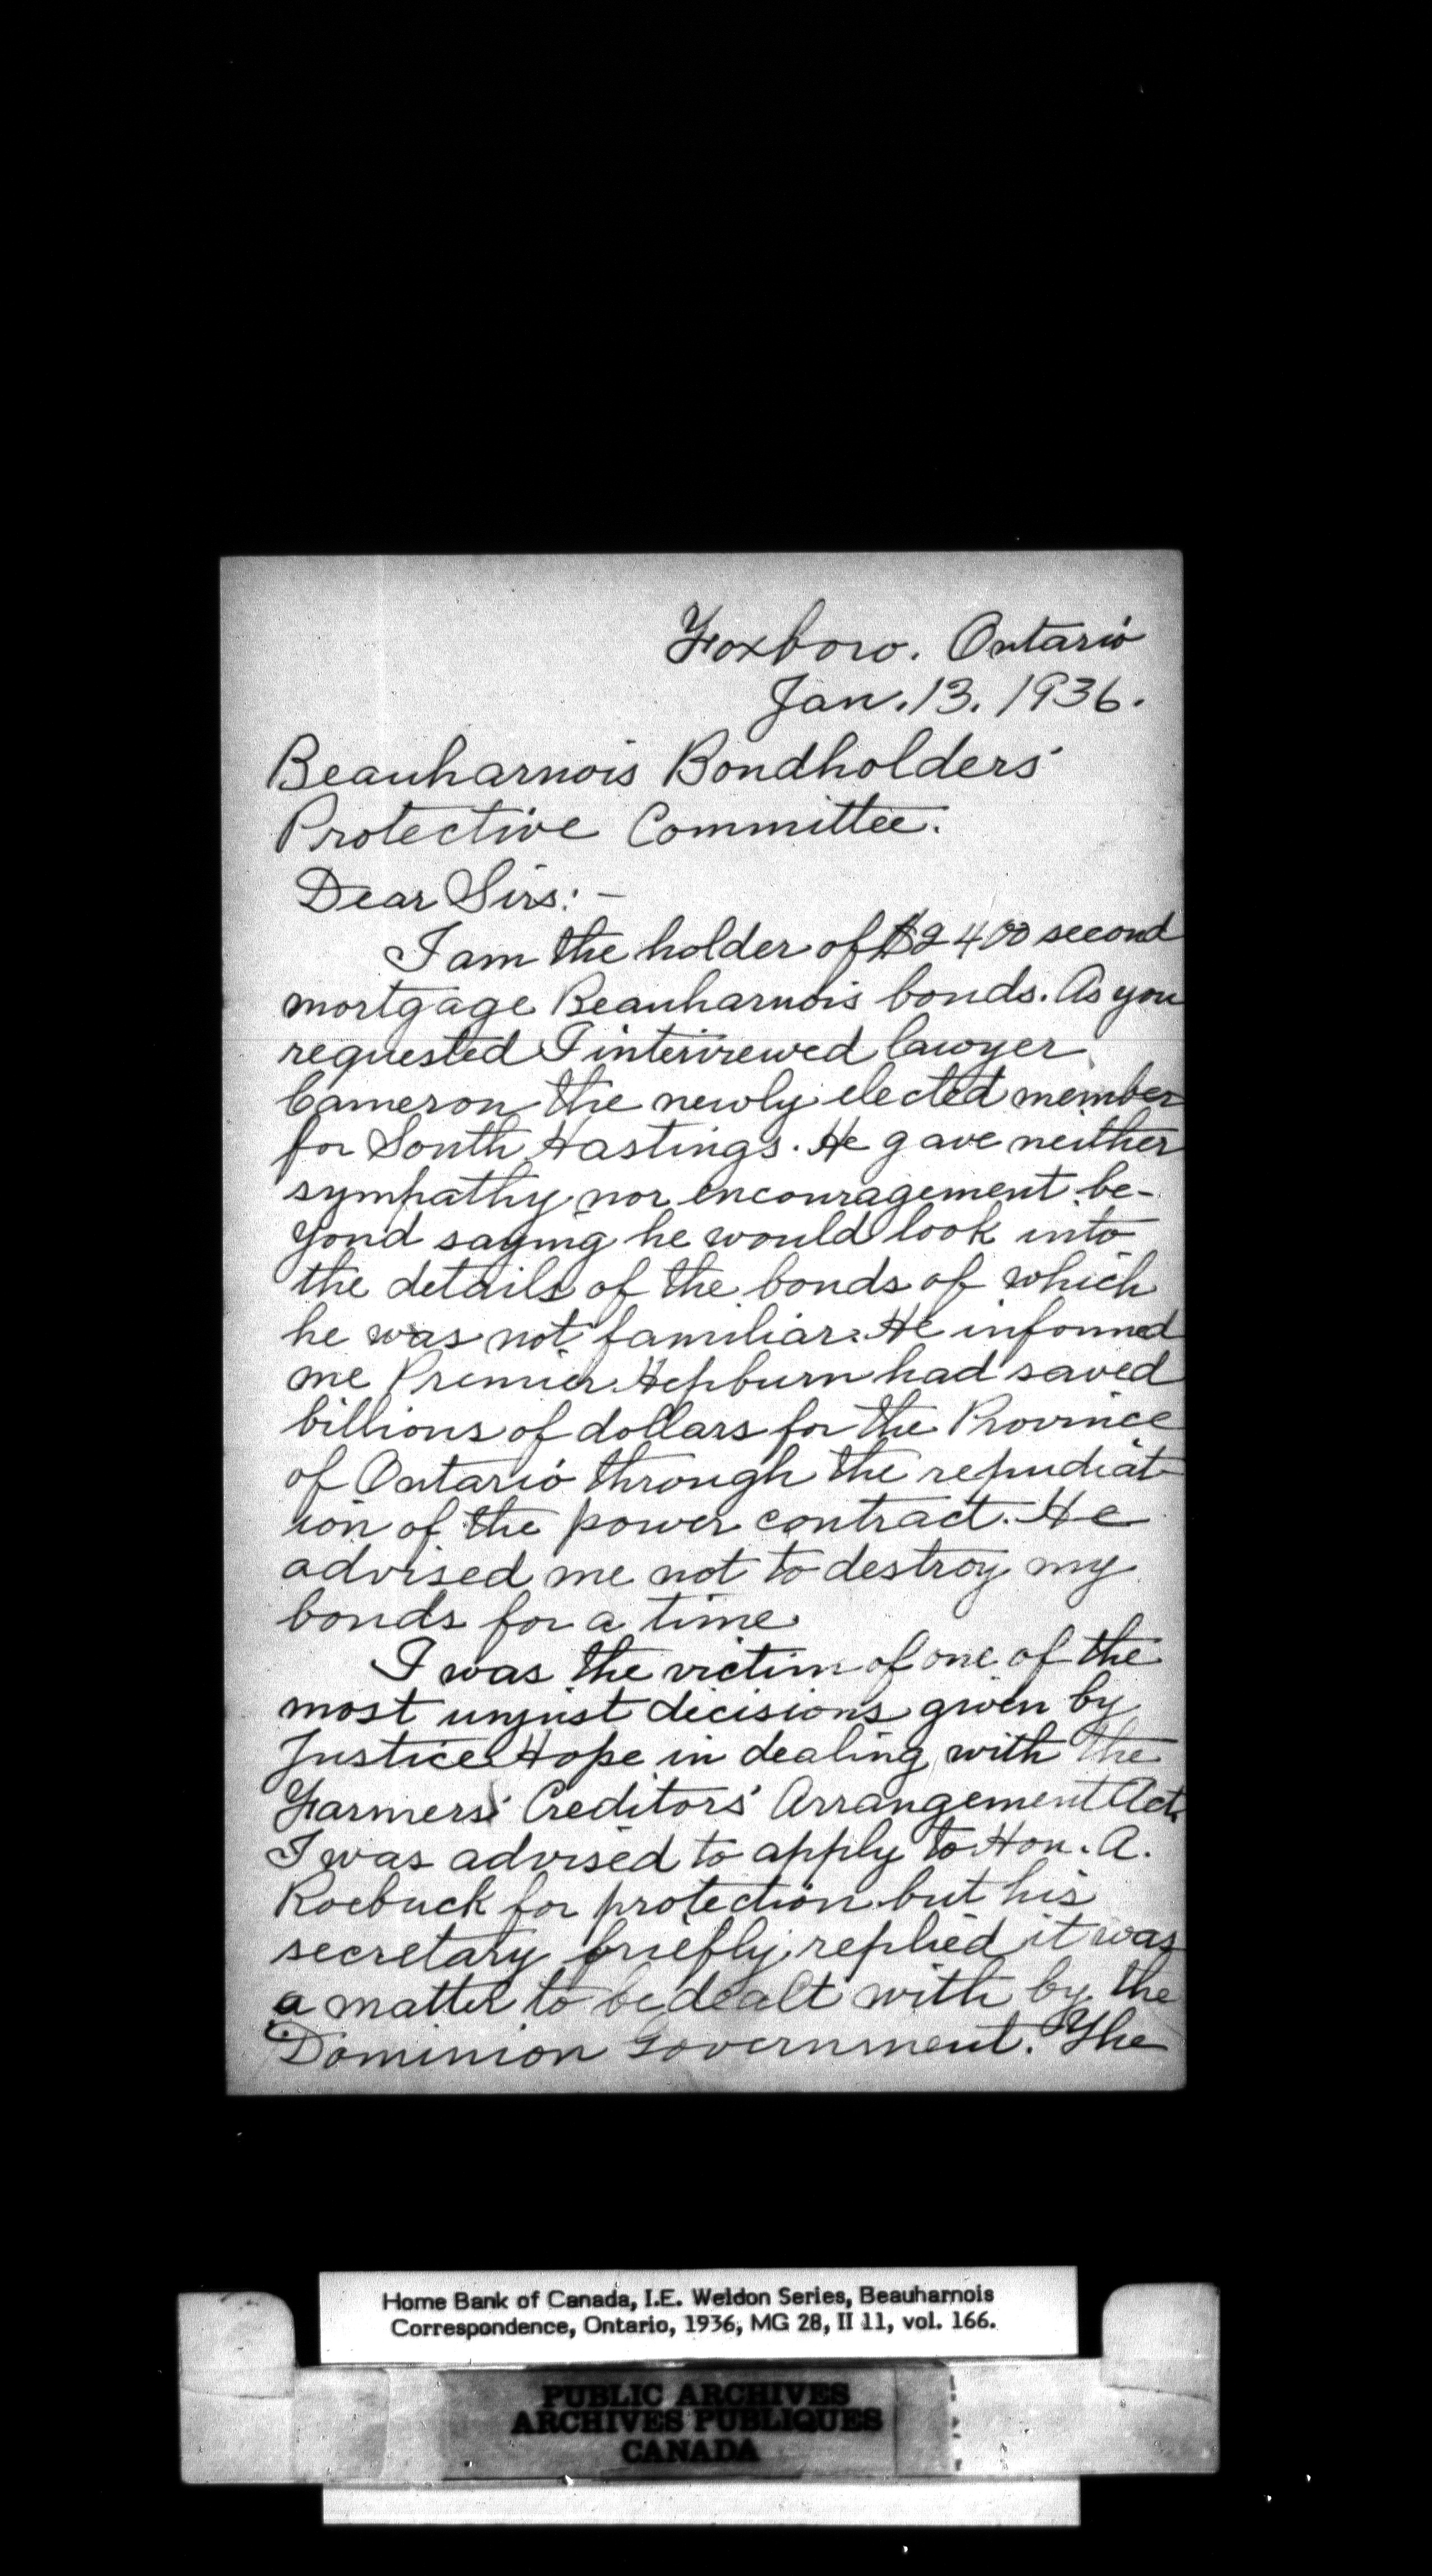 Foxboro. Ontario
Jan. 13. 1936.
Beauharnois Bondholders'
Protective Committee.
Dear Sirs: -
I am the holder of $2400 second
mortgage Beauharnois bonds. As you
requested I interviewed lawyer
Cameron the newly elected member
for South Hastings. He gave neither
sympathy nor encouragement be-
yond saying he would look into
the details of the bonds of which
he was not familiar. He informed
me Premier Hepburn had saved
billions of dollars for the Province
of Ontario through the repudiat-
ion of the power contract. He
advised me not to destroy my
bonds for a time
I was the victim of one of the
most unjust decisions given by
Justice Hope in dealing with the
Farmers' Creditors' Arrangement Act.
I was advised to apply to Hon. A.
Roebuck for protection but his
secretary briefly replied it was
a matter to be dealt with by the
Dominion Government. The
Home Bank of Canada, I.E. Weldon Series, Beauharnois
Correspondence, Ontario, 1936, MG 28, II 11, vol. 166.
PUBLIC ARCHIVES
ARCHIVES PUBLIQUES
CANADA